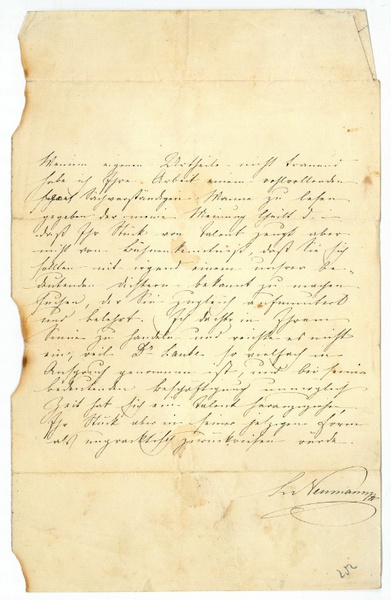 Meinem eigenen Urtheile nicht trauend
habe ich Ihre Arbeit einem wohlwollenden
Sachverständigen Manne zu lesen
gegeben der meine Meinung theilt
daß Ihr Stück von Talent zeugt aber
nicht von Bühnenkenntniß, daß Sie sich
sollten mit irgend einem unsrer be-
deutenden Dichtern bekannt zu machen
suchen, der Sie zugleich aufmuntert
und belehrt. Ich dachte in Ihrem
Sinne zu handeln und reichte es nicht
ein, weil Dr Laube so vielfach in
Anspruch genommen ist, und bei seiner
bedeutenden Beschäftigung unmöglich
Zeit hat sich ein Talent heranzuziehen,
Ihr Stück aber in seiner jetzigen Form
als unpracktisch zurückweisen würde.
Neumann
252